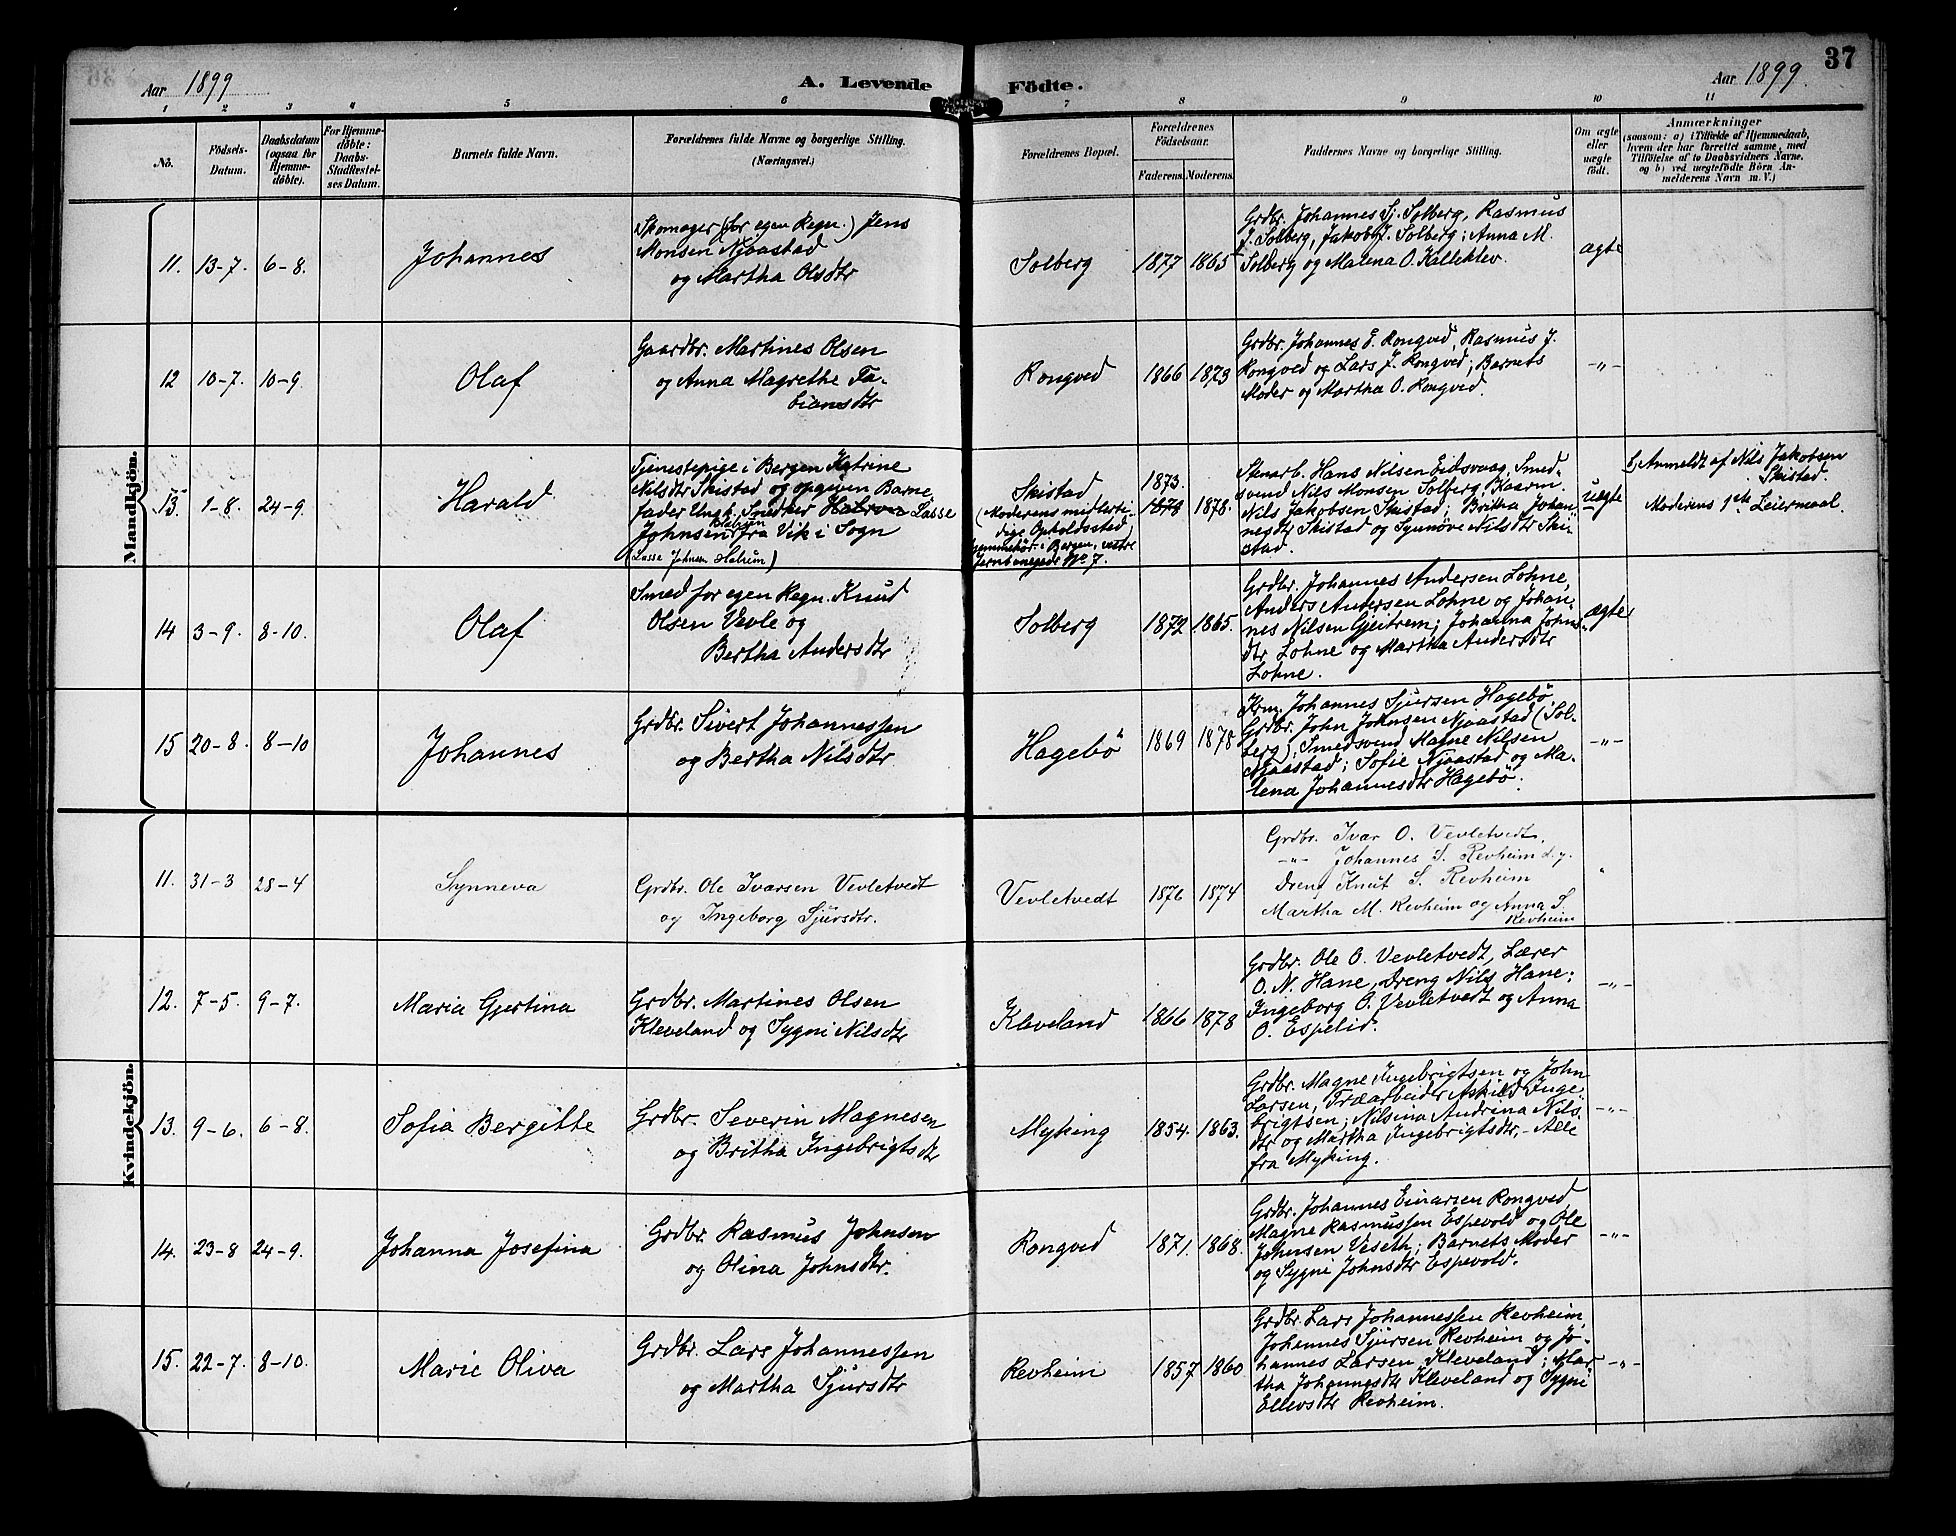 37
Aar 1899
A. Levende Födte.
Aar 1899.
1 2 3 4 5 6 7 8 9 10 11
No.
Födsels-
Datum.
Daabsdatum
(ogsaa for
Hjemme-
döbte).
For Hjemme-
döbte:
Daabs-
Stadfæstel-
ses Datum.
Barnets fulde Navn.
Forældrenes fulde Navne og borgerlige Stilling.
(Næringsvei.)
Forældrenes Bopæl.
Forældrenes
Födselsaar.
Faderens. Moderens.
Faddernes Navne og borgerlige Stilling.
Om ægte
eller
uægte
födt.
Anmærkninger
(saasom: a) i Tilfælde af Hjemmedaab,
hvem der har forrettet samme, med
Tilföielse af to Daabsvidners Navne,
og b) ved uægtefödte Börn An-
melderens Navn m. V.)
Mandkjön.
11. 13-7. 6-8.
Johannes
Skomager (for egen Regn.) Jens
Monsen Njaastad
og Martha Olsdtr
Solberg
1877 1865
Grdbr. Johannes Sj. Solberg, Rasmus
J. Solberg, Jakob J. Solberg; Anna M.
Solberg og Malena O. Kalleklev.
ægte
12 10-7. 10-9.
Olaf
Gaardbr. Martines Olsen
og Anna Magrethe Fa-
biansdtr
Rongved
1866 1873
Grdbr. Johannes E. Rongved, Rasmus J.
Rongved og Lars J. Rongved; Barnets
Moder og Martha O. Rongved.
-"-
13. 1-8. 24-9.
Harald
Tjenestepige i Bergen Katrine
Nilsdtr Skistad og opgiven Barne-
fader Ungk. Snedker Lasse
Johnsen fra Vik i Sogn
(Lasse Johnsen Halrim)
Skistad
(Moderens midlerti-
dige Opholdsstad
i Bergen, vestre
No 7.
1873.
1878.
Stenarb. Hans Nilsen Eidsvaag, Smed-
svend Nils Monsen Solberg, Kaarm.
Nils Jakobsen Skistad; Britha Johan-
nesdtr Skistad og Synnöve Nilsdtr Ski-
stad.
uægte
b, Anmeldt af Nils Jakobsen
Skistad.
Moderens 1ste Leiermaal.
14 3-9. 8-10.
Olaf
Smed for egen Regn. Knud
Olsen Vevle og
Bertha Andersdtr
Solberg
1872 1865.
Grdbr. Johannes Andersen Lohne,
Anders Andersen Lohne og Johan-
nes Nilsen Gjeitrem; Johanna Johns-
dtr Lohne og Martha Andersdtr
Lohne.
ægte
15 20-8. 8-10
Johannes
Grdbr. Sivert Johannessen
og Bertha Nilsdtr
Hagebö
1869 1878
Johannes Sjursen Hagebö,
Grdbr. John Johnsen Njaastad (Sol-
berg), Smedsvend Magne Nilsen
Njaastad; Sofie Njaastad og Ma-
lena Johannesdtr Hagebö.
-"-
Kvindekjön.
11. 31-3 28-4
Synneva
Grdbr. Ole Ivarsen Vevletvedt
og Ingeborg Sjursdtr.
Vevletvedt
1876 1874
Grdbr. Ivar O. Vevletvedt,
-"- Johannes S. Revheim d.y.
Dreng Knut S. Revheim
Martha M. Revheim og Anna S.
Revheim
"
12. 7-5. 9-7.
Maria Gjertina
Grdbr. Martines Olsen
Kleveland og Sygni Nilsdtr
Kleveland
1866 1878
Grdbr. Ole O. Vevletvedt, Lærer
O. N. Hane, Dreng Nils Hane;
Ingeborg O. Vevletvedt og Anna
O. Espelid.
-"-
13. 9-6. 6-8.
Sofia Bergitte
Grdbr. Severin Magnesen
og Britha Ingebrigtsdtr
Myking
1854. 1863.
Grdbr. Magne Ingebrigtsen og John
Larsen, Træarbeider Askild Inge-
brigtsen; Nilsina Andrina Nils-
dtr og Martha Ingebrigtsdtr, - Alle
fra Myking.
-"-
14. 23-8 24-9.
Johanna Josefina
Grdbr. Rasmus Johnsen
og Olina Johnsdtr.
Rongved
1871. 1868.
Grdbr. Johannes Einarsen Rongved
Magne Rasmussen Espevold og Ole
Johnsen Veseth; Barnets Moder
og Sygni Johnsdtr Espevold.
-"-
15. 22-7. 8-10.
Marie Oliva
Grdbr. Lars Johannessen
og Martha Sjursdtr
Revheim
1857 1860
Grdbr. Lars Johannessen Revheim,
Johannes Sjursen Revheim og Jo-
hannes Larsen Kleveland; Mar-
tha Johannesdtr Kleveland og Sygni
Ellevsdtr Revheim.
-"-